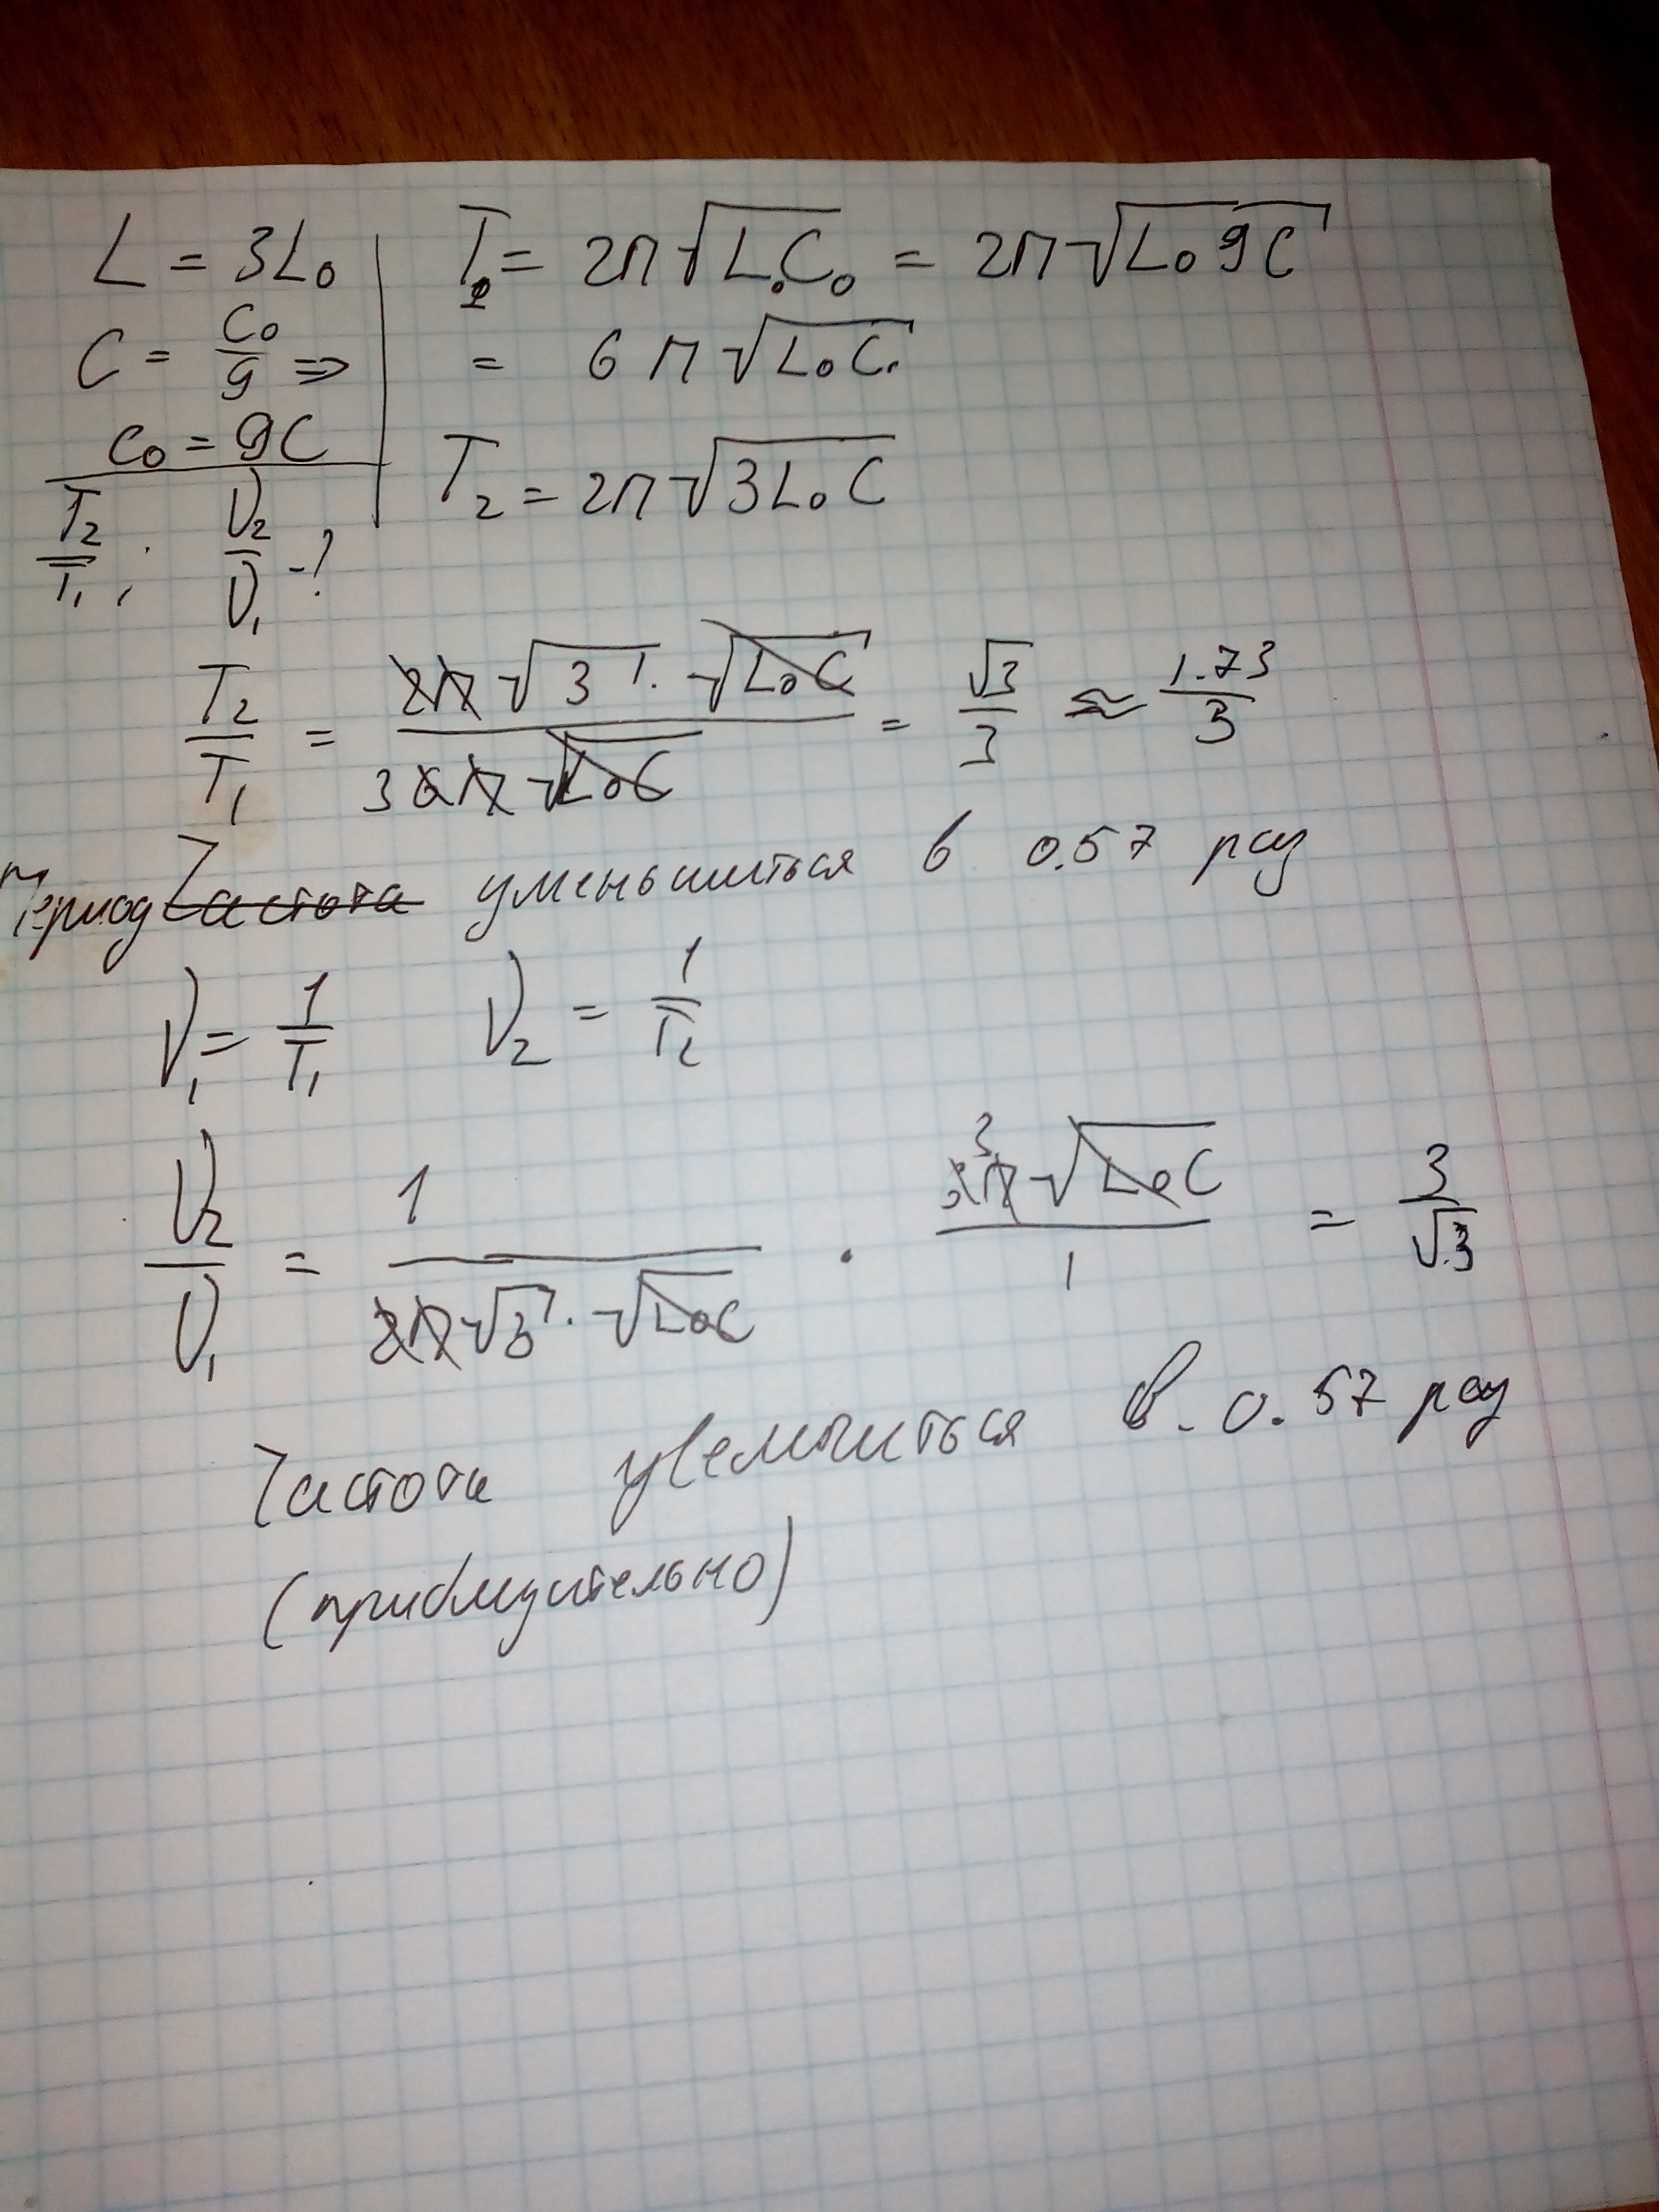 L = 3L₀
C = C₀/9 ⇒
C₀ = 9C
T₂/T₁ ; ν₂/ν₁ - ?
T₁ = 2π√L₀C₀ = 2π√L₀9C
= 6π√L₀C
T₂ = 2π√3L₀C
T₂/T₁ = 2π√3 · √L₀C / 3 6π√L₀C = √3/3 ≈ 1.73/3
Период Частота уменьшиться в 0.57 раз
ν₁ = 1/T₁ ν₂ = 1/T₂
ν₂/ν₁ = 1/2π√3 · √L₀C · 3 6π√L₀C/1 = 3/√3
Частота увеличиться в 0.57 раз
(приблизительно)